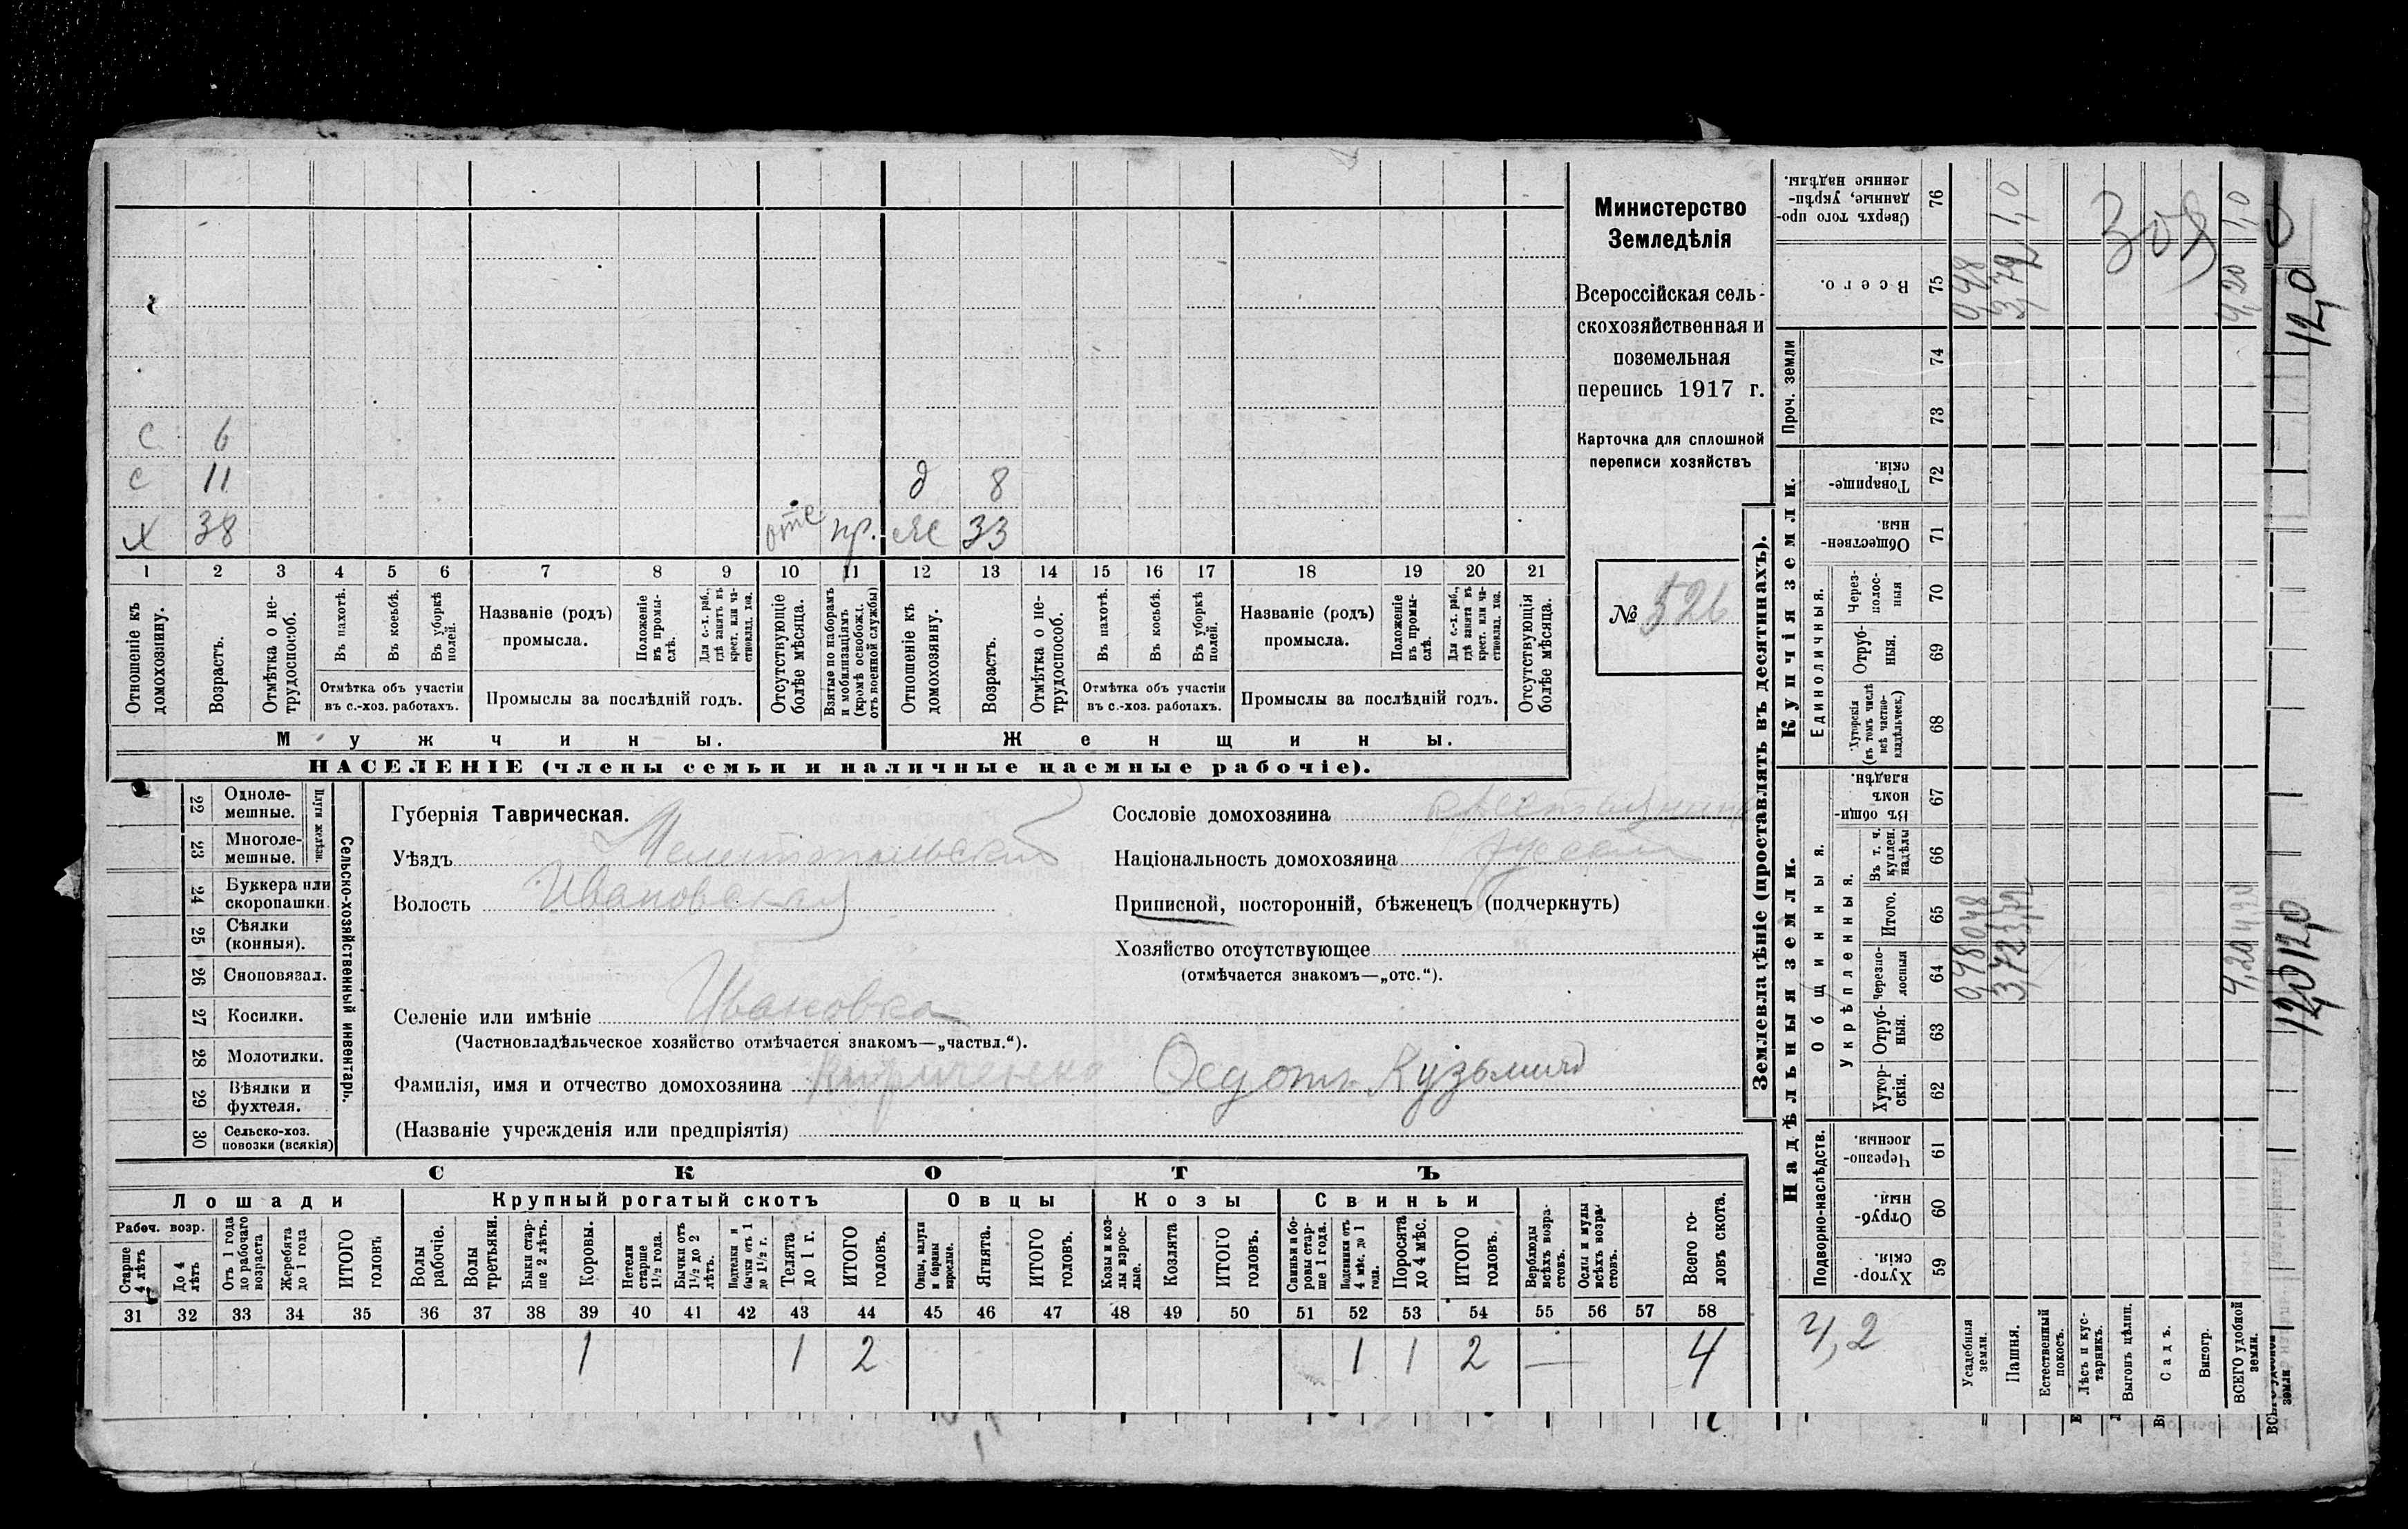 С 6
С 11 д 8
Х 38 отс пр. ж 33
1 2 3 4 5 6 7 8 9 10 11 12 13 14 15 16 17 18 19 20 21
Отношеніе къ домохозяину.
Возрастъ.
Отмѣтка о не-
трудоспособ.
Въ пахотѣ.
Въ косьбѣ.
Въ уборкѣ
полей.
Отмѣтка объ участіи
въ с.-хоз. работахъ.
Названіе (родъ)
промысла.
Положеніе
въ промы-
слѣ.
Для с.-х. раб.,
гдѣ занятъ въ
крест. или ча-
стновлад. хоз.
Промыслы за послѣдній годъ.
Отсутствующіе
болѣе мѣсяца.
Взятые по наборамъ
и мобилизаціямъ
(кромѣ освобожд.
отъ военной службы)
Отношеніе къ
домохозяину.
Возрастъ.
Отмѣтка о не-
трудоспособ.
Въ пахотѣ.
Въ косьбѣ.
Въ уборкѣ
полей.
Отмѣтка объ участіи
въ с.-хоз. работахъ.
Названіе (родъ)
промысла.
Положеніе
въ промы-
слѣ.
Для с.-х. раб.,
гдѣ занята въ
крест. или ча-
стновлад. хоз.
Промыслы за послѣдній годъ.
Отсутствующія
болѣе мѣсяца.
Мужчины. Женщины.
НАСЕЛЕНІЕ (члены семьи и наличные наемные рабочіе).
Министерство
Земледѣлія
Всероссійская сель-
скохозяйственная и
поземельная
перепись 1917 г.
Карточка для сплошной
переписи хозяйствъ
№ 526
22 Одноле-
мешные.
23 Многоле-
мешные.
Плуги желѣзн.
24 Буккера или
скоропашки.
25 Сѣялки
(конныя).
26 Сноповязал.
27 Косилки.
28 Молотилки.
29 Вѣялки и
фухтеля.
30 Сельско-хоз.
повозки (всякія)
Сельско-хозяйственный инвентарь.
Губернія Таврическая.
Уѣздъ Мелитопольскій
Волость Ивановская
Селеніе или имѣніе Ивановка
(Частновладѣльческое хозяйство отмѣчается знакомъ—„частвл.“).
Фамилія, имя и отчество домохозяина Кириченко Ѳедотъ Кузьмичъ
(Названіе учрежденія или предпріятія)
Сословіе домохозяина
Національность домохозяина русскій
Приписной, посторонній, бѣженецъ (подчеркнуть)
Хозяйство отсутствующее
(отмѣчается знакомъ—„отс.“).
СКОТЪ
Лошади Крупный рогатый скотъ Овцы Козы Свиньи
Рабоч. возр.
Старше
4 лѣтъ
До 4
лѣтъ
Отъ 1 года
до рабочаго
возраста
Жеребята
до 1 года
ИТОГО
головъ
Волы
рабочіе.
Волы
третьяки.
Быки стар-
ше 2 лѣтъ.
Коровы.
Нетели
старше
1½ года.
Бычки отъ
1½ до 2
лѣтъ.
Подтелки и
бычки отъ 1
до 1½ г.
Телята
до 1 г.
ИТОГО
головъ.
Овцы, валухи
и бараны
взрослые.
Ягнята.
ИТОГО
головъ.
Козы и коз-
лы взрос-
лые.
Козлята
ИТОГО
головъ.
Свиньи и бо-
ровы стар-
ше 1 года.
Подсвинки отъ
4 мѣс. до 1
года.
Поросята
до 4 мѣс.
ИТОГО
головъ.
Верблюды
всѣхъ возра-
стовъ.
Ослы и мулы
всѣхъ возра-
стовъ.
Всего го-
ловъ скота.
31 32 33 34 35 36 37 38 39 40 41 42 43 44 45 46 47 48 49 50 51 52 53 54 55 56 57 58
1 1 2 1 1 2 — 4
Землевладѣніе (проставлять въ десятинахъ).
Надѣльныя земли. Купчія земли.
Подворно-наслѣдств.
Общинныя.
Укрѣпленныя.
Единоличныя.
Проч. земли
Хутор-
скія. 59
Отруб-
ныя. 60
Черезпо-
лосныя. 61
Хутор-
скія. 62
Отруб-
ныя. 63
Черезпо-
лосныя 64
Итого. 65
Въ т. ч.
куплен.
надѣлы 66
Въ общи-
номъ
владѣн. 67
Хуторскія
(въ томъ числѣ
всѣ частно-
владѣльческ.) 68
Отруб-
ныя. 69
Через-
полос-
ныя 70
Обществен-
ныя. 71
Товарище-
скія. 72
73
74
Всего. 75
Сверхъ того про-
данные, укрѣп-
ленные надѣлы. 76
4,2
Усадебныя
земли. 0,48 0,48 0,48
Пашня. 3,72 3,72 3,72 1,0
Естественный
покосъ.
Лѣсъ и кус-
тарникъ.
Выгонъ цѣлин.
Садъ.
Виногр.
ВСЕГО удобной
земли. 4,20 4,20 4,20 1,0
12,0 12,0
12,0